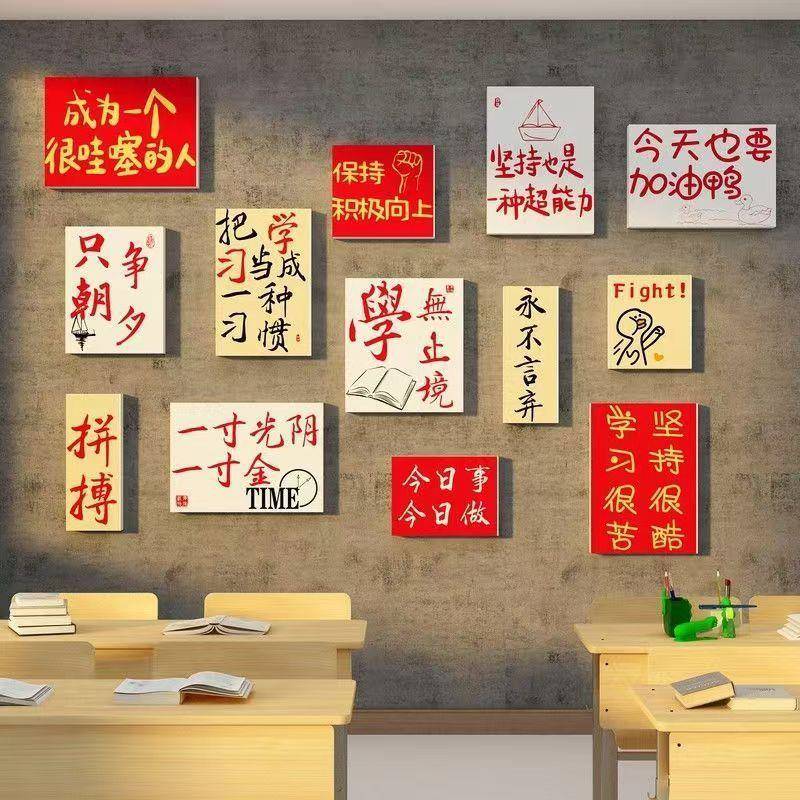 成为一个
很哇塞的人
保持
积极向上
坚持也是
一种超能力
今天也要
加油鸭
只争
朝夕
把学
习当成
一种
习惯
學
無止境
永不言弃
Fight!
拼搏
一寸光阴
一寸金
TIME
今日事
今日做
学习很苦
坚持很酷